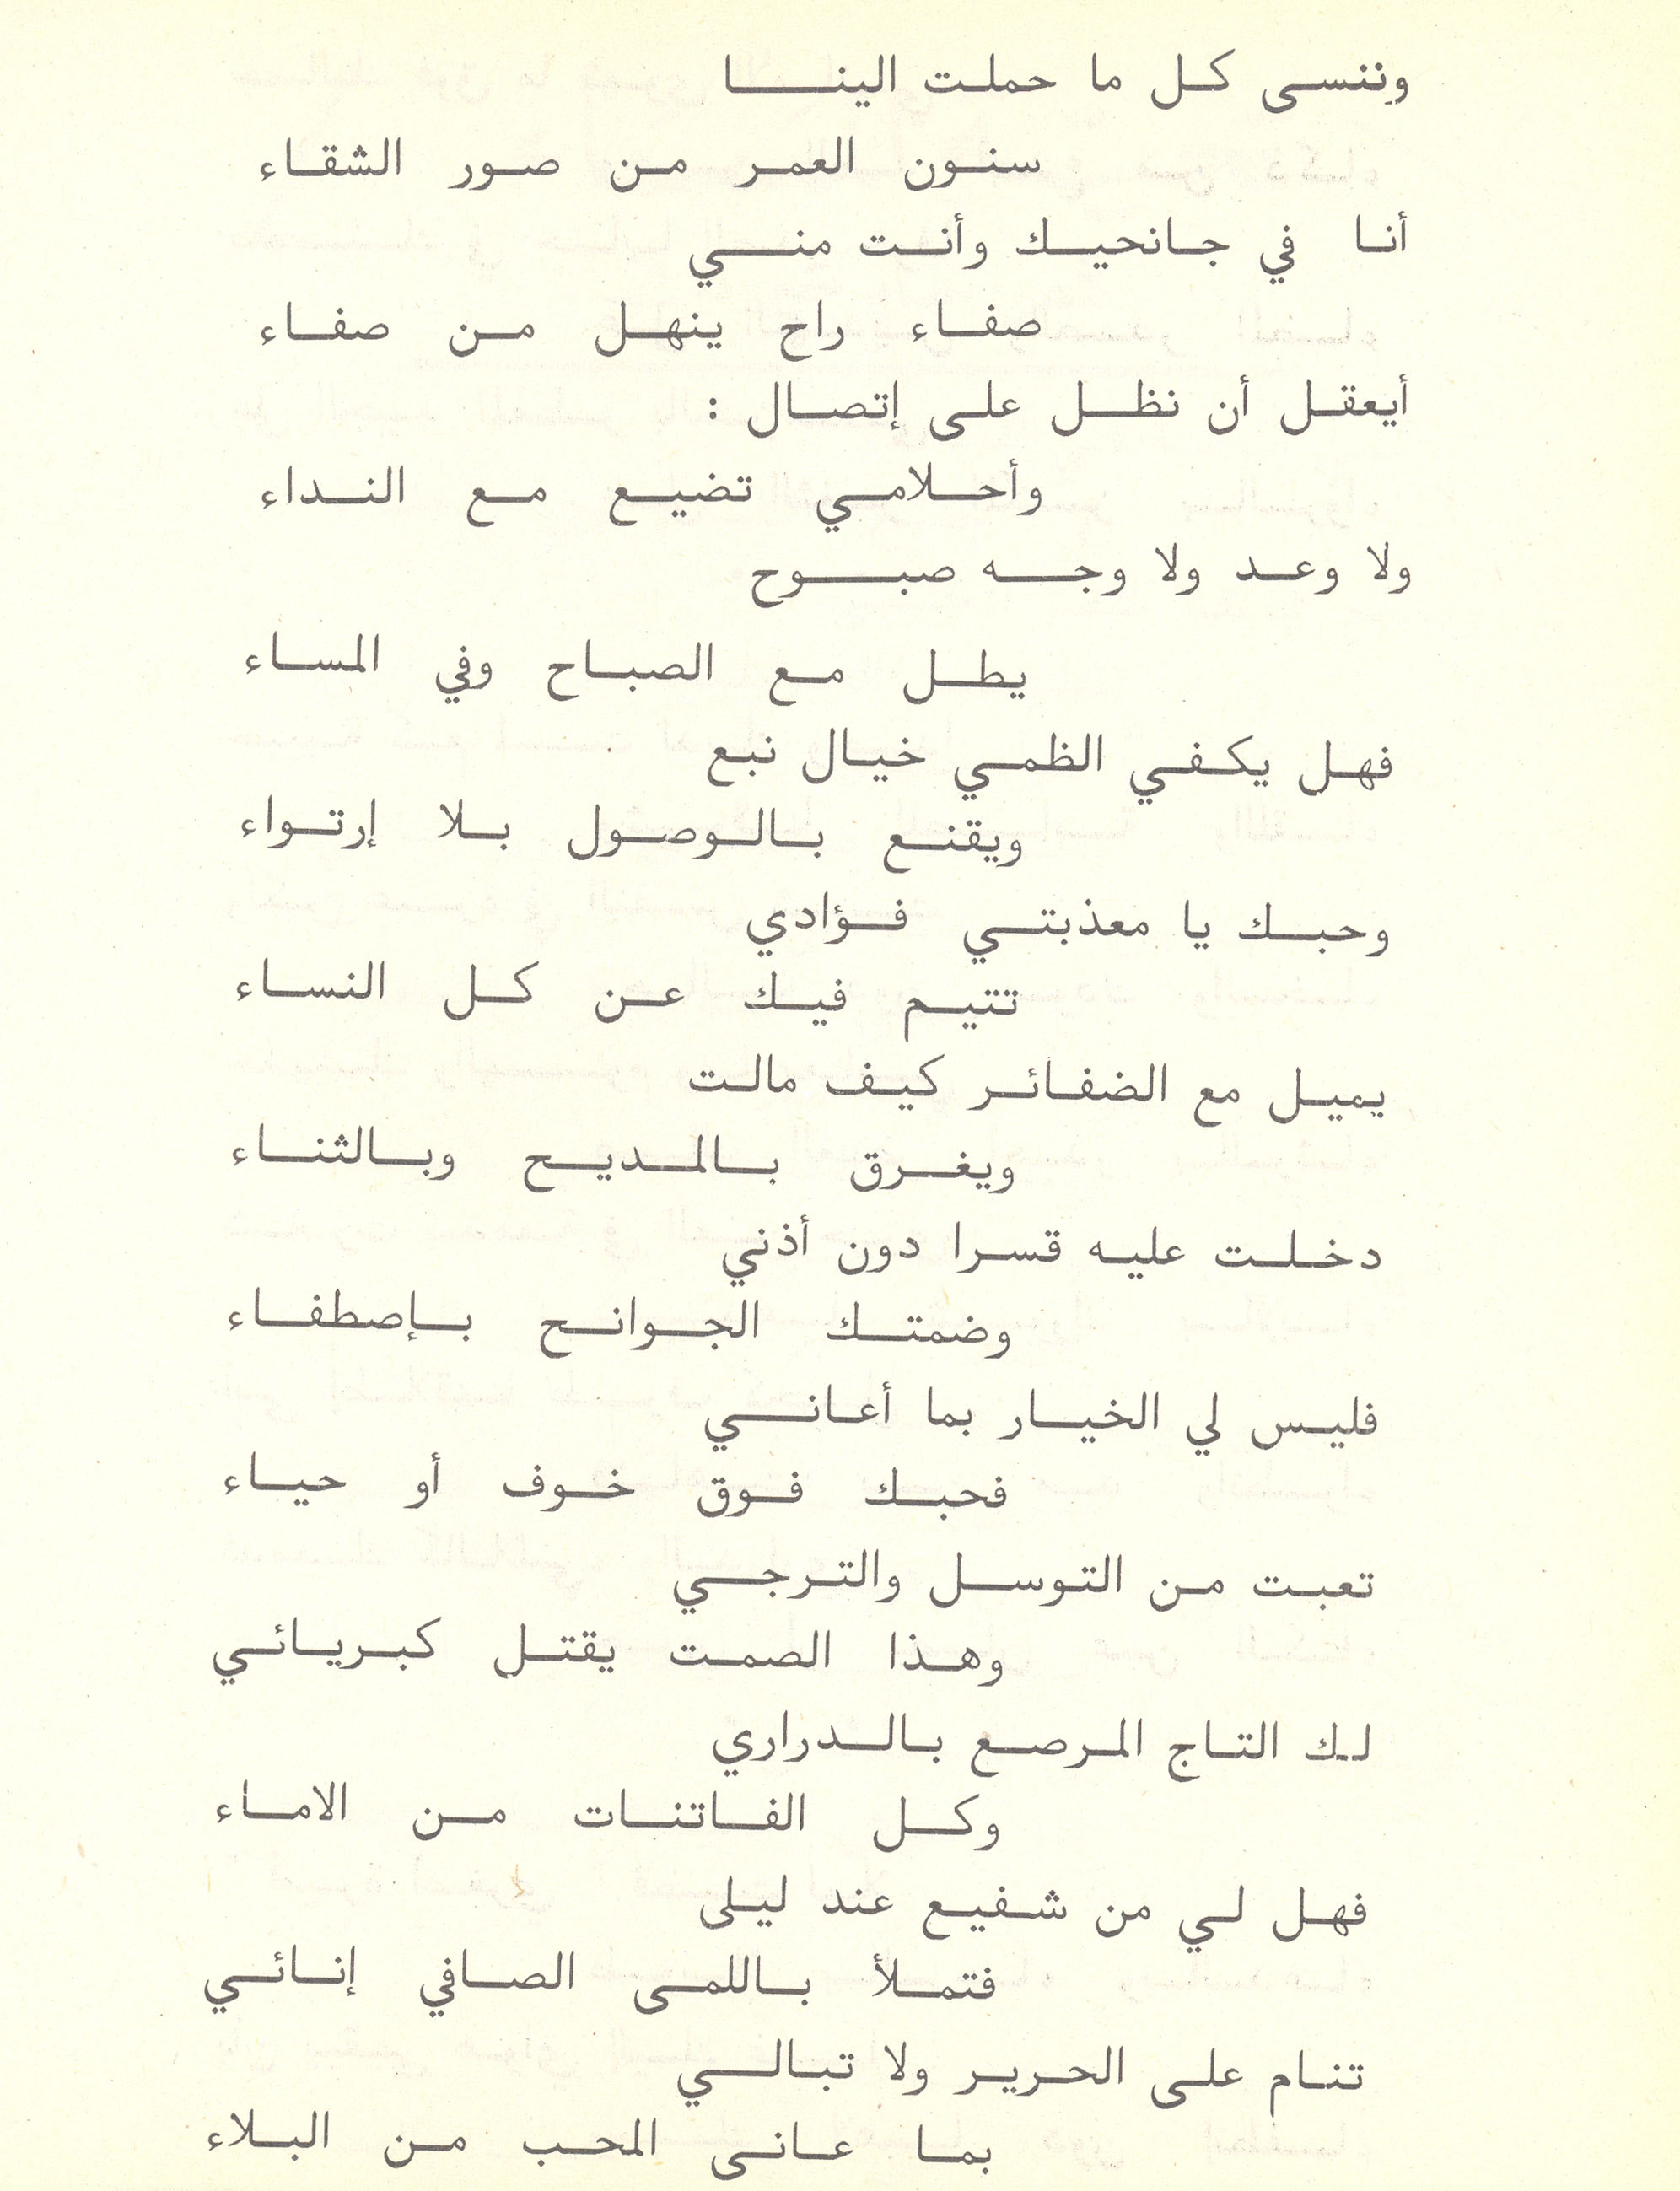 وننسى كل ما حملت الينا
سنون العمر من صور الشقاء
أنا في جانحيك وأنت مني
صفاء راح ينهل من صفاء
أيعقل أن نظل على إتصال :
وأحلامي تضيع مع النداء
ولا وعد ولا وجه صبوح
يطل مع الصباح وفي المساء
فهل يكفي الظمي خيال نبع
ويقنع بالوصول بلا إرتواء
وحبك يا معذبتي فؤادي
تتيم فيك عن كل النساء
يميل مع الضفائر كيف مالت
ويغرق بالمديح وبالثناء
دخلت عليه قسرا دون أذني
وضمتك الجوانح بإصطفاء
فليس لي الخيار بما أعاني
فحبك فوق خوف أو حياء
تعبت من التوسل والترجي
وهذا الصمت يقتل كبريائي
لك التاج المرصع بالدراري
وكل الفاتنات من الاماء
فهل لي من شفيع عند ليلى
فتملأ باللمى الصافي إنائي
تنام على الحرير ولا تبالي
بما عانى المحب من البلاء